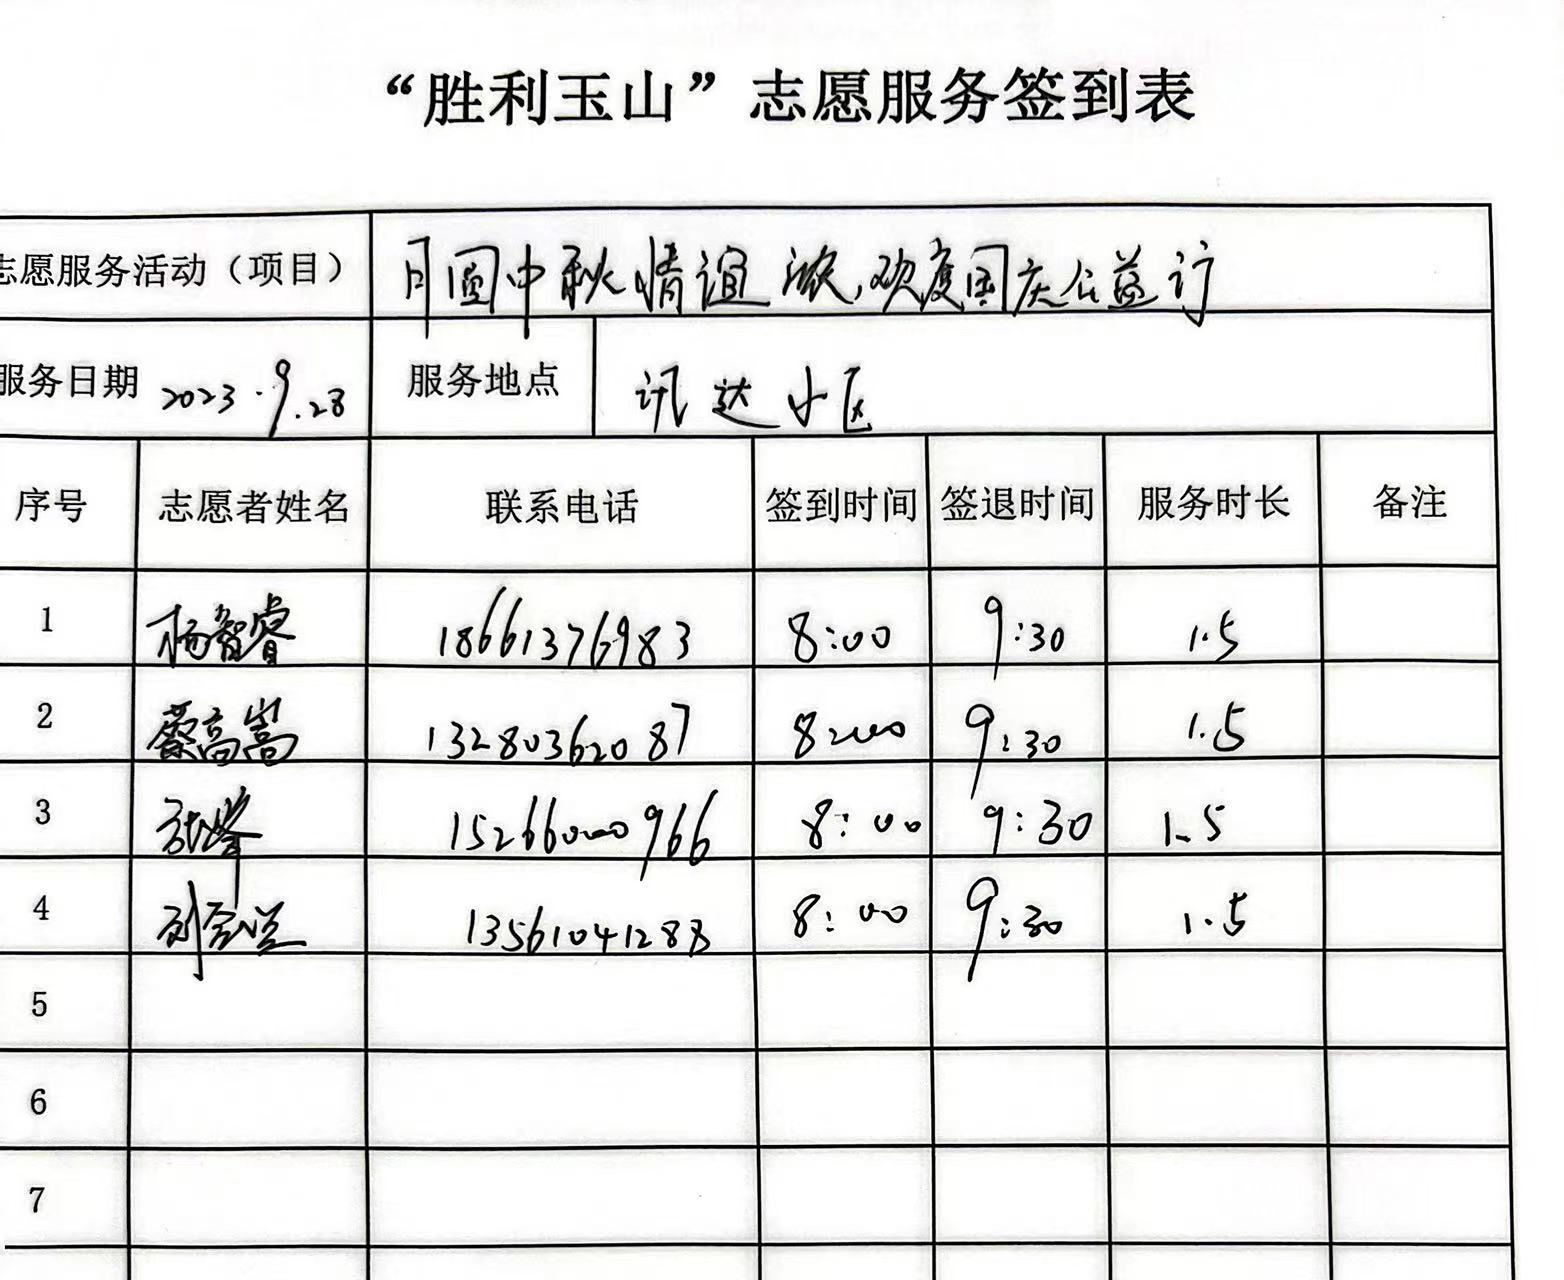 “胜利玉山”志愿服务签到表
志愿服务活动（项目） 月圆中秋情谊浓,欢度国庆公益行
服务日期 2023.9.28 服务地点 讯达小区
序号 志愿者姓名 联系电话 签到时间 签退时间 服务时长 备注
1 杨智睿 18661376983 8:00 9:30 1.5
2 蔡高嵩 13280362087 8:00 9:30 1.5
3 15266000966 8:00 9:30 1.5
4 13561041288 8:00 9:30 1.5
5
6
7